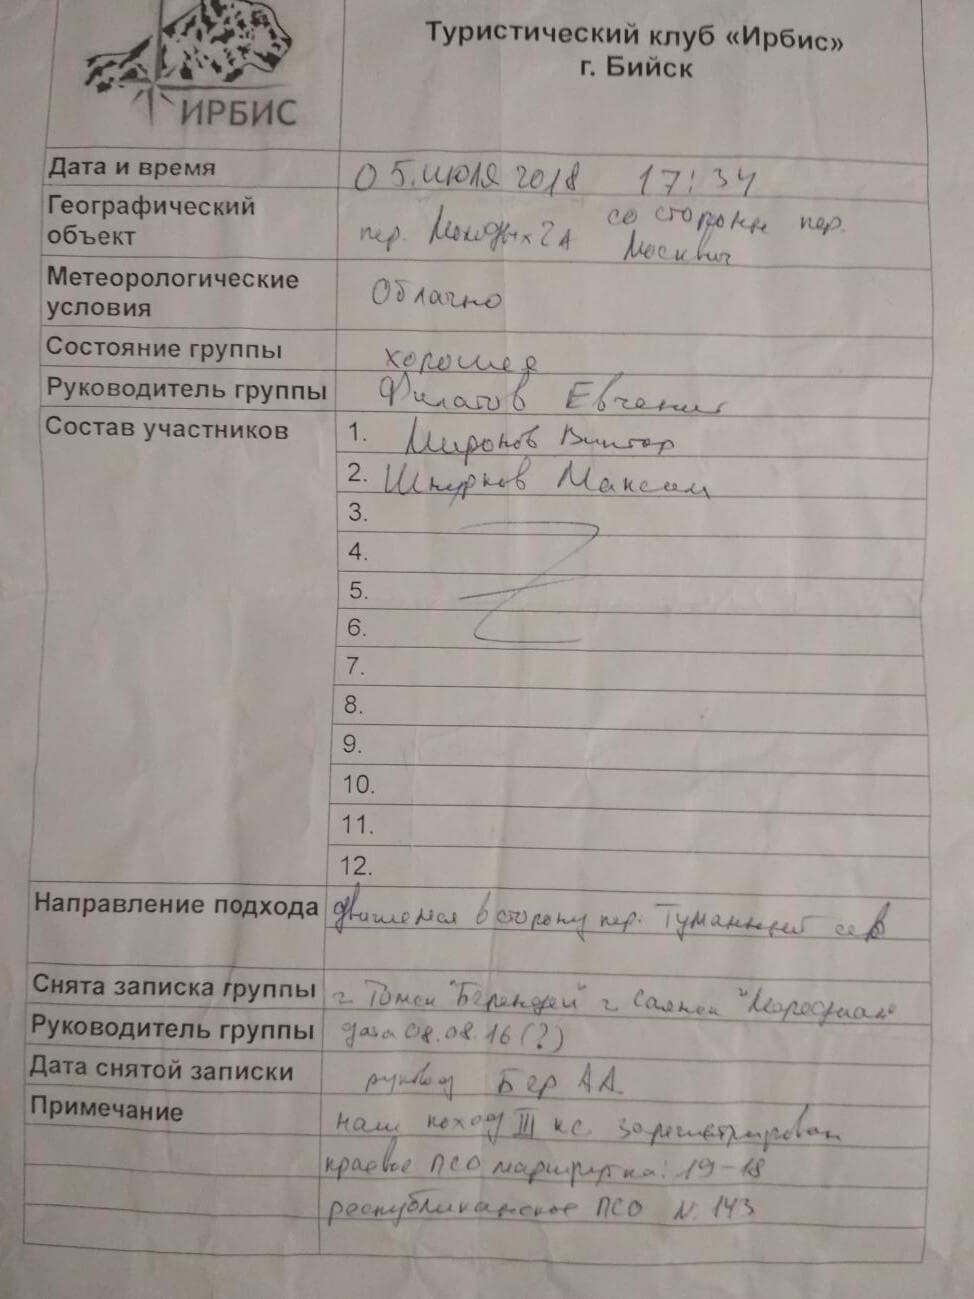 ИРБИС
Туристический клуб «Ирбис»
г. Бийск
Дата и время
05.июля 2018 17:34
Географический
объект
пер. Молодых 2А со стороны пер.
Москвич
Метеорологические
условия
Облачно
Состояние группы
хорошее
Руководитель группы
Филатов Евгений
Состав участников
1. Миронов Виктор
2. Шнурков Максим
3.
4.
5.
6.
7.
8.
9.
10.
11.
12.
Направление подхода
движемся в сторону пер. Туманный
Снята записка группы
г. Томск "Берендей" г. Саянск "Меридиан"
Руководитель группы
дата 08.08.16 (?)
Дата снятой записки
руковод Бер А А.
Примечание
наш поход III к.с. зарегистрирован
краевое ПСО маршрутка: 19-18
республиканское ПСО N. 143